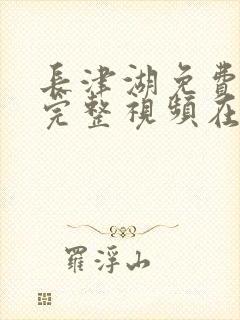 長津湖免費
完整視頻在
羅浮山